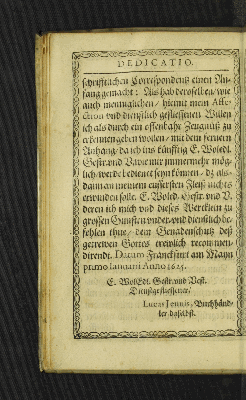 DEDICATIO.
schrifftlichen Correspondentz einen An-
fang gemacht: Als hab deroselben/ wie
auch menniglichen/ hiemit mein Affe-
ction vnd dienstlich geflissenen Willen
ich als durch ein offenbahr Zeugnüß zu
erkennen geben wollen/ mit dem fernern
Anhang/ da ich ins künfftig E. Woledl.
Gestr. vnd immermehr mög-
lich werde bedienet seyn können/ dz als-
dann an meinem eussersten Fleiß nichts
erwinden solle. E. Woled. Gestr. vnd V.
deren ich mich vnd dieses Wercklein zu
grossen Gunsten vnder vnd dienstlich be-
fehlen thue/ dem Genadenschutz deß
getrewen Gottes trewlich recommen-
direndt. Datum Franckfurt am Mayn
primo Ianuarii Anno 1625.
E. WolEdl. Gestr. vnd Vest.
Dienstgeflissener/
Lucas Jennis, Buchhänd-
ler daselbst.